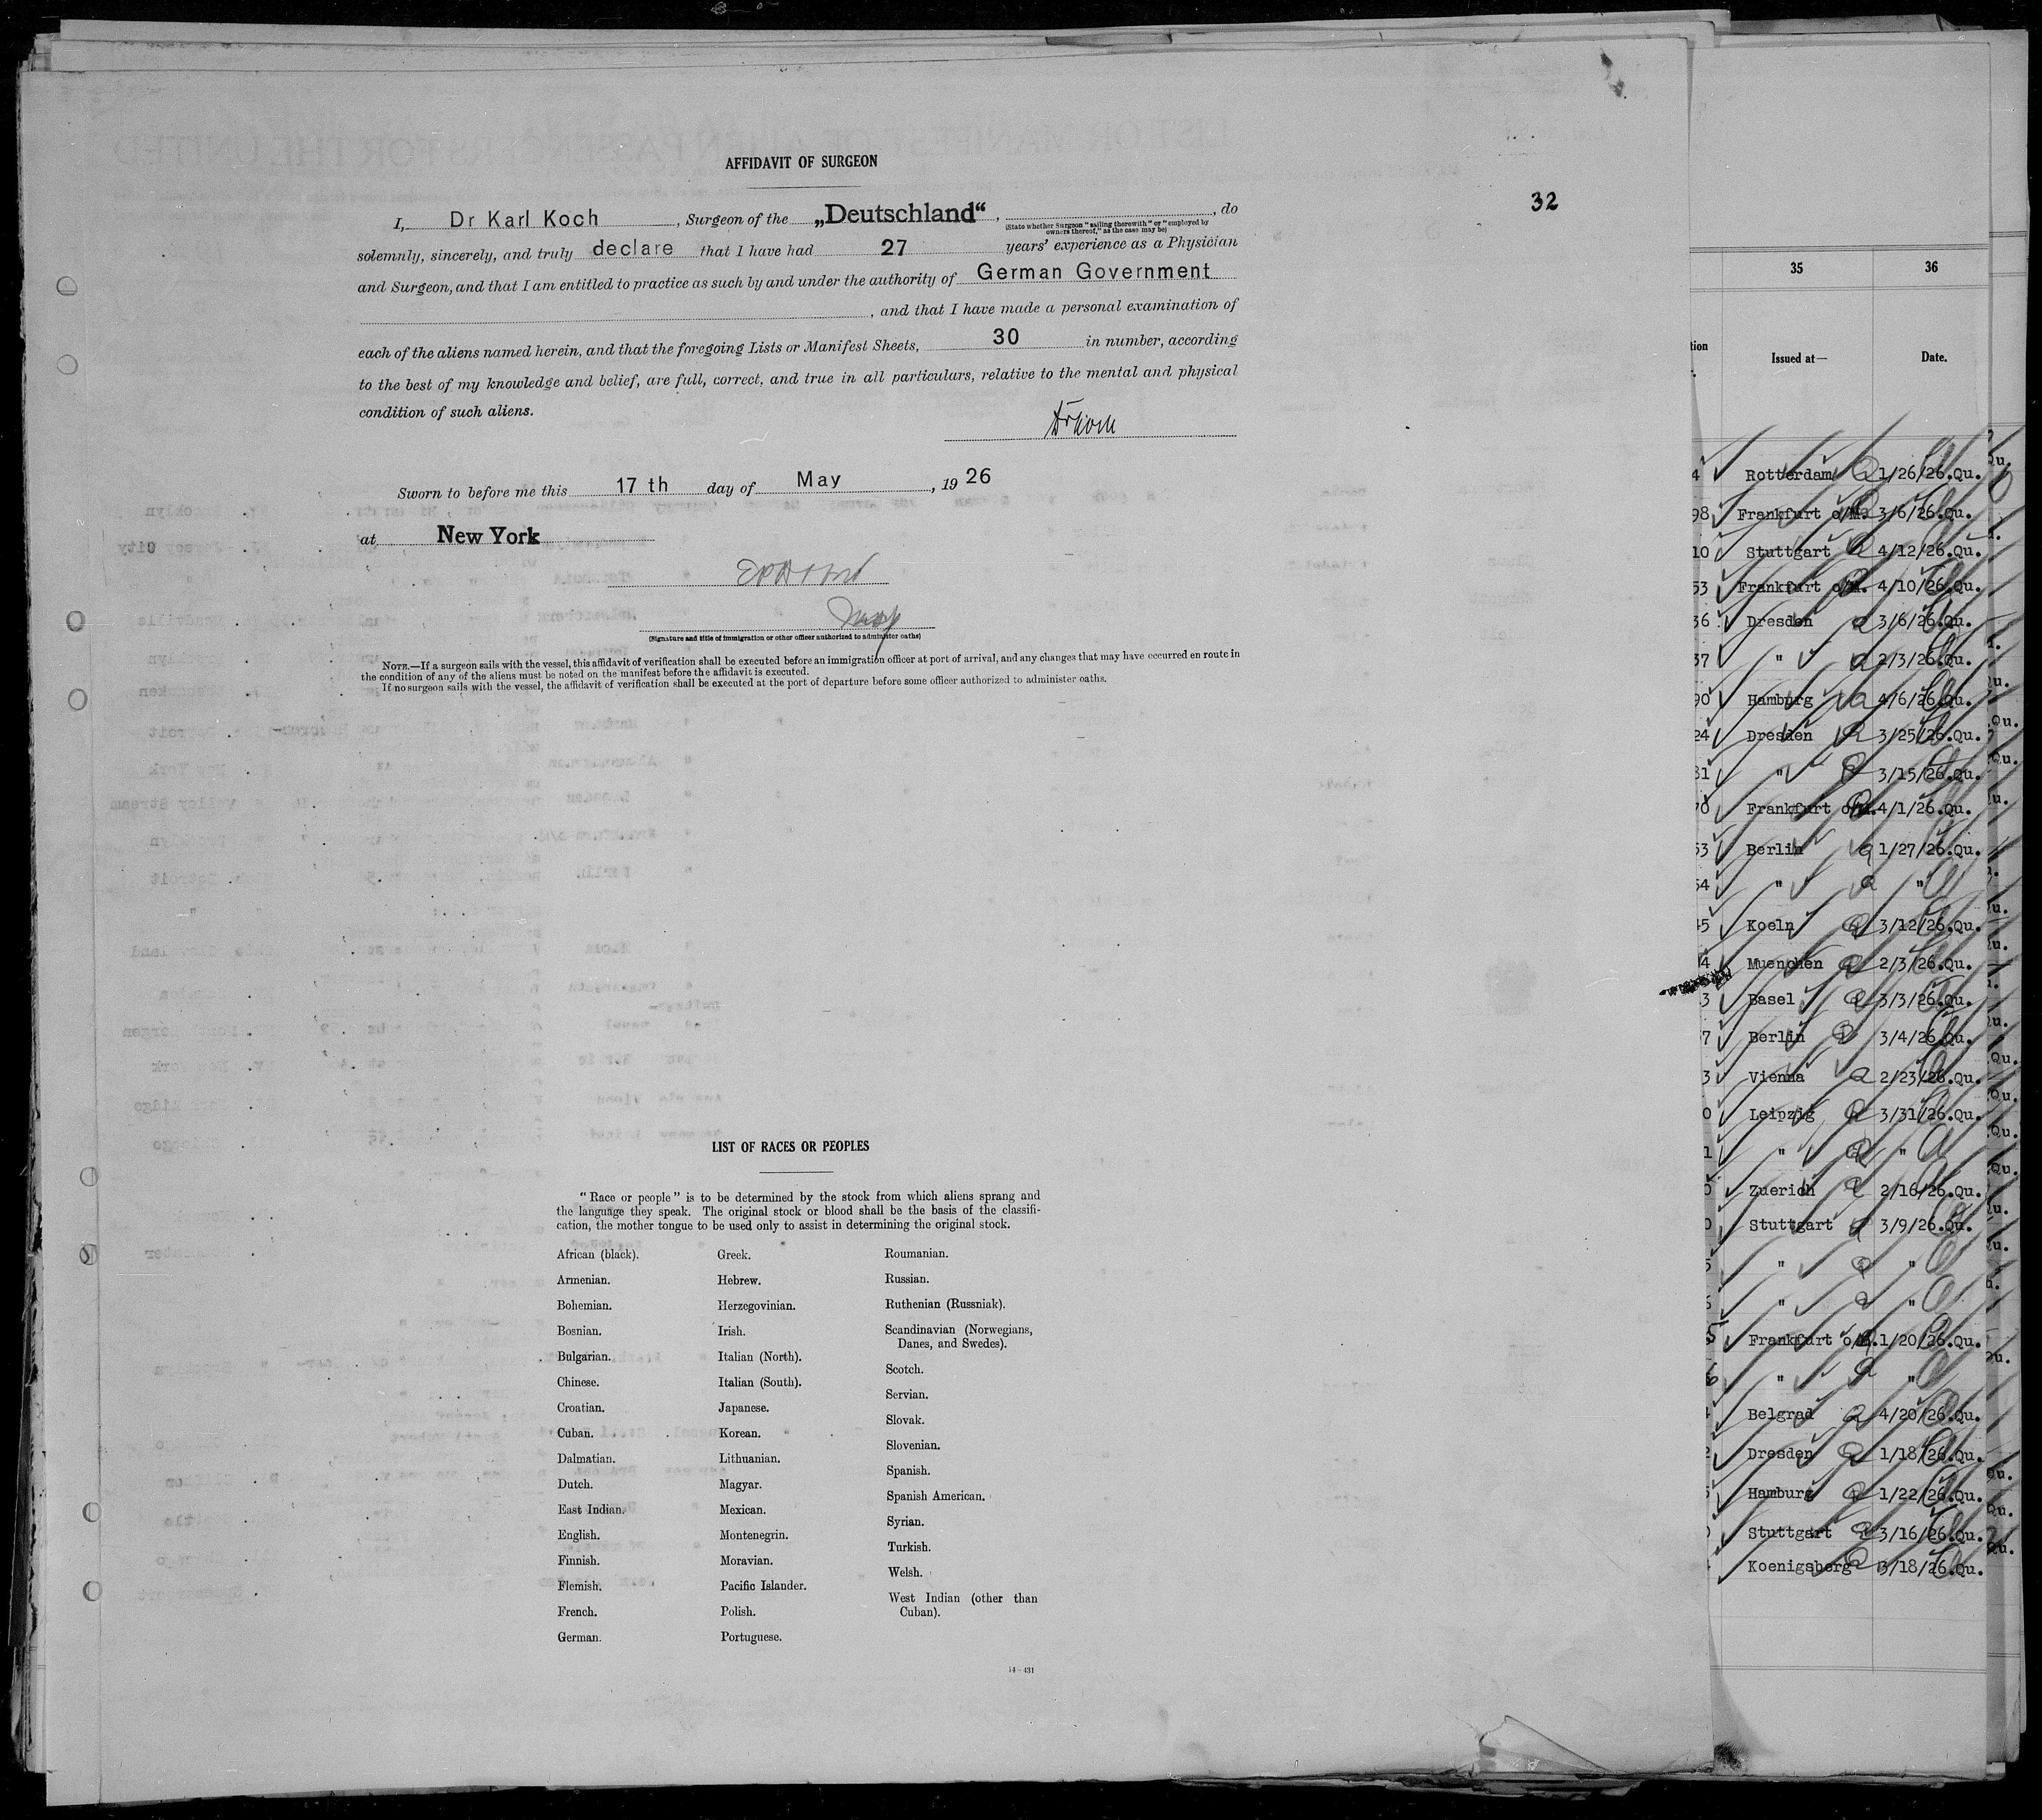 AFFIDAVIT OF SURGEON
32
I, Dr Karl Koch, Surgeon of the „Deutschland“, , do
(State whether Surgeon "sailing therewith" or "employed by
owners thereof," as the case may be)
solemnly, sincerely, and truly declare that I have had 27 years' experience as a Physician
and Surgeon, and that I am entitled to practice as such by and under the authority of German Government
, and that I have made a personal examination of
each of the aliens named herein, and that the foregoing Lists or Manifest Sheets, 30 in number, according
to the best of my knowledge and belief, are full, correct, and true in all particulars, relative to the mental and physical
condition of such aliens.
Sworn to before me this 17 th day of May, 1926
at New York
(Signature and title of immigration or other officer authorized to administer oaths)
NOTE.—If a surgeon sails with the vessel, this affidavit of verification shall be executed before an immigration officer at port of arrival, and any changes that may have occurred en route in
the condition of any of the aliens must be noted on the manifest before the affidavit is executed.
If no surgeon sails with the vessel, the affidavit of verification shall be executed at the port of departure before some officer authorized to administer oaths.
LIST OF RACES OR PEOPLES
"Race or people" is to be determined by the stock from which aliens sprang and
the language they speak. The original stock or blood shall be the basis of the classifi-
cation, the mother tongue to be used only to assist in determining the original stock.
African (black).
Armenian.
Bohemian.
Bosnian.
Bulgarian.
Chinese.
Croatian.
Cuban.
Dalmatian.
Dutch.
East Indian.
English.
Finnish.
Flemish.
French.
German.
Greek.
Hebrew.
Herzegovinian.
Irish.
Italian (North).
Italian (South).
Japanese.
Korean.
Lithuanian.
Magyar.
Mexican.
Montenegrin.
Moravian.
Pacific Islander.
Polish.
Portuguese.
Roumanian.
Russian.
Ruthenian (Russniak).
Scandinavian (Norwegians,
Danes, and Swedes).
Scotch.
Servian.
Slovak.
Slovenian.
Spanish.
Spanish American.
Syrian.
Turkish.
Welsh.
West Indian (other than
Cuban).
14—431
35 36
Issued at— Date.
Rotterdam 1/26/26.Qu.
Frankfurt o/M. 3/6/26.Qu.
Stuttgart 4/12/26.Qu.
Frankfurt o/M. 4/10/26.Qu.
Dresden 3/6/26.Qu.
" 2/3/26.Qu.
Hamburg 4/6/26.Qu.
Dresden 3/25/26.Qu.
" 3/15/26.Qu.
Frankfurt o/M. 4/1/26.Qu.
Berlin 1/27/26.Qu.
" "
Koeln 3/12/26.Qu.
Muenchen 2/3/26.Qu.
Basel 3/3/26.Qu.
Berlin 3/4/26.Qu.
Vienna 2/23/26.Qu.
Leipzig 3/31/26.Qu.
" "
Zuerich 2/16/26.Qu.
Stuttgart 3/9/26.Qu.
" "
" "
Frankfurt o/M. 1/20/26.Qu.
" "
Belgrad 4/20/26.Qu.
Dresden 1/18/26.Qu.
Hamburg 1/22/26.Qu.
Stuttgart 3/16/26.Qu.
Koenigsberg 3/18/26.Qu.